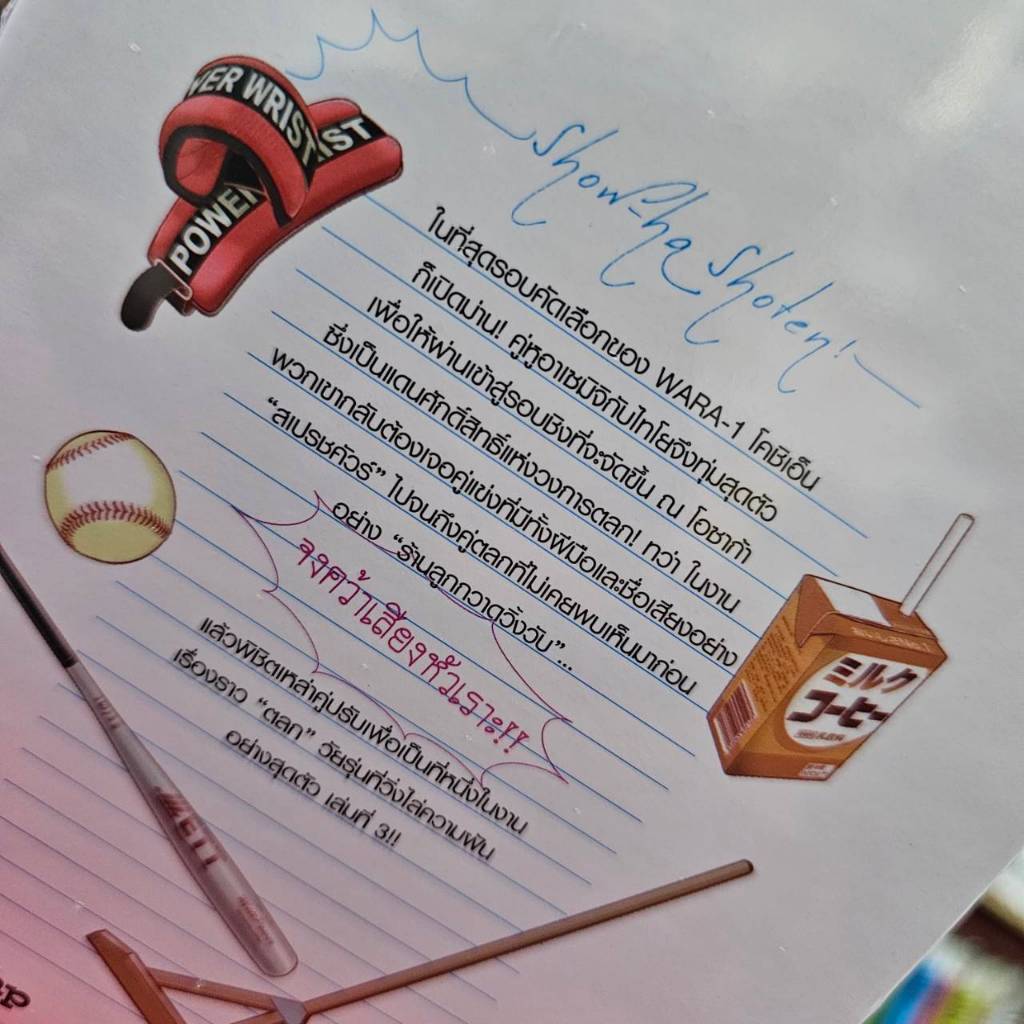 POWER WRIST
POWER WRIST
Show-ha Shoten!
ในที่สุดรอบคัดเลือกของ WARA-1 โคชิเอ็น
ก็เปิดม่าน! คู่หูอาเซมิจิกับไทโยจึงทุ่มสุดตัว
เพื่อให้ผ่านเข้าสู่รอบชิงที่จะจัดขึ้น ณ โอซาก้า
ซึ่งเป็นแดนศักดิ์สิทธิ์แห่งวงการตลก! ทว่า ในงาน
พวกเขากลับต้องเจอคู่แข่งที่มีทั้งฝีมือและชื่อเสียงอย่าง
“สเปรชคัวร์” ไปจนถึงคู่ตลกที่ไม่เคยพบเห็นมาก่อน
อย่าง “ร้านลูกกวาดวิ้งวับ”...
จงคว้าเสียงหัวเราะ!!
แล้วพิชิตเหล่าคู่ปรับเพื่อเป็นที่หนึ่งในงาน
เรื่องราว “ตลก” วัยรุ่นที่วิ่งไล่ความฝัน
อย่างสุดตัว เล่มที่ 3!!
ミルク
コーヒー
ZETT